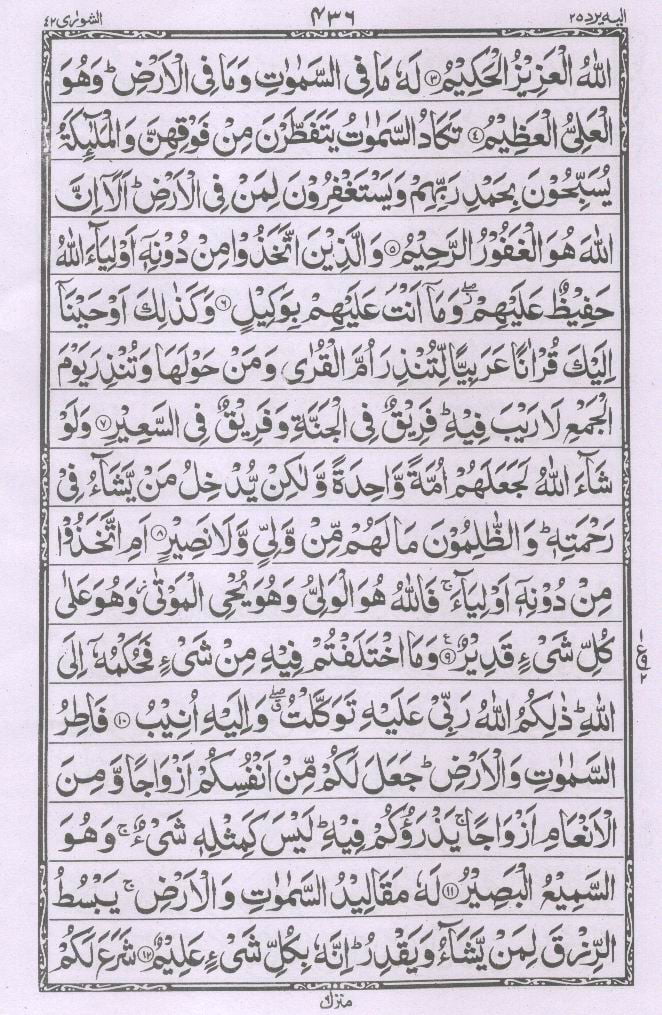 الیه یرد ۲۵ ۴۳۶ الشورٰی ۴۲
اللّٰهُ الْعَزِیْزُ الْحَكِیْمُ ۳ لَهٗ مَا فِی السَّمٰوٰتِ وَمَا فِی الْاَرْضِ ؕ وَهُوَ
الْعَلِیُّ الْعَظِیْمُ ۴ تَكَادُ السَّمٰوٰتُ یَتَفَطَّرْنَ مِنْ فَوْقِهِنَّ وَالْمَلٰٓىِٕكَةُ
یُسَبِّحُوْنَ بِحَمْدِ رَبِّهِمْ وَیَسْتَغْفِرُوْنَ لِمَنْ فِی الْاَرْضِ ؕ اَلَاۤ اِنَّ
اللّٰهَ هُوَ الْغَفُوْرُ الرَّحِیْمُ ۵ وَالَّذِیْنَ اتَّخَذُوْا مِنْ دُوْنِهٖۤ اَوْلِیَآءَ اللّٰهُ
حَفِیْظٌ عَلَیْهِمْ ۖ وَمَاۤ اَنْتَ عَلَیْهِمْ بِوَكِیْلٍ ۶ وَكَذٰلِكَ اَوْحَیْنَاۤ
اِلَیْكَ قُرْاٰنًا عَرَبِیًّا لِّتُنْذِرَ اُمَّ الْقُرٰی وَمَنْ حَوْلَهَا وَتُنْذِرَ یَوْمَ
الْجَمْعِ لَا رَیْبَ فِیْهِ ؕ فَرِیْقٌ فِی الْجَنَّةِ وَفَرِیْقٌ فِی السَّعِیْرِ ۷ وَلَوْ
شَآءَ اللّٰهُ لَجَعَلَهُمْ اُمَّةً وَّاحِدَةً وَّلٰكِنْ یُّدْخِلُ مَنْ یَّشَآءُ فِیْ
رَحْمَتِهٖ ؕ وَالظّٰلِمُوْنَ مَا لَهُمْ مِّنْ وَّلِیٍّ وَّلَا نَصِیْرٍ ۸ اَمِ اتَّخَذُوْا
مِنْ دُوْنِهٖۤ اَوْلِیَآءَ ۚ فَاللّٰهُ هُوَ الْوَلِیُّ وَهُوَ یُحْیِ الْمَوْتٰی ؗ وَهُوَ عَلٰی
كُلِّ شَیْءٍ قَدِیْرٌ ۹ ع وَمَا اخْتَلَفْتُمْ فِیْهِ مِنْ شَیْءٍ فَحُكْمُهٗۤ اِلَی
اللّٰهِ ؕ ذٰلِكُمُ اللّٰهُ رَبِّیْ عَلَیْهِ تَوَكَّلْتُ ۖ وَاِلَیْهِ اُنِیْبُ ۱۰ فَاطِرُ
السَّمٰوٰتِ وَالْاَرْضِ ؕ جَعَلَ لَكُمْ مِّنْ اَنْفُسِكُمْ اَزْوَاجًا وَّمِنَ
الْاَنْعَامِ اَزْوَاجًا ۚ یَذْرَؤُكُمْ فِیْهِ ؕ لَیْسَ كَمِثْلِهٖ شَیْءٌ ۚ وَهُوَ
السَّمِیْعُ الْبَصِیْرُ ۱۱ لَهٗ مَقَالِیْدُ السَّمٰوٰتِ وَالْاَرْضِ ۚ یَبْسُطُ
الرِّزْقَ لِمَنْ یَّشَآءُ وَیَقْدِرُ ؕ اِنَّهٗ بِكُلِّ شَیْءٍ عَلِیْمٌ ۱۲ شَرَعَ لَكُمْ
۱
ع ۹
۲
منزل ۶